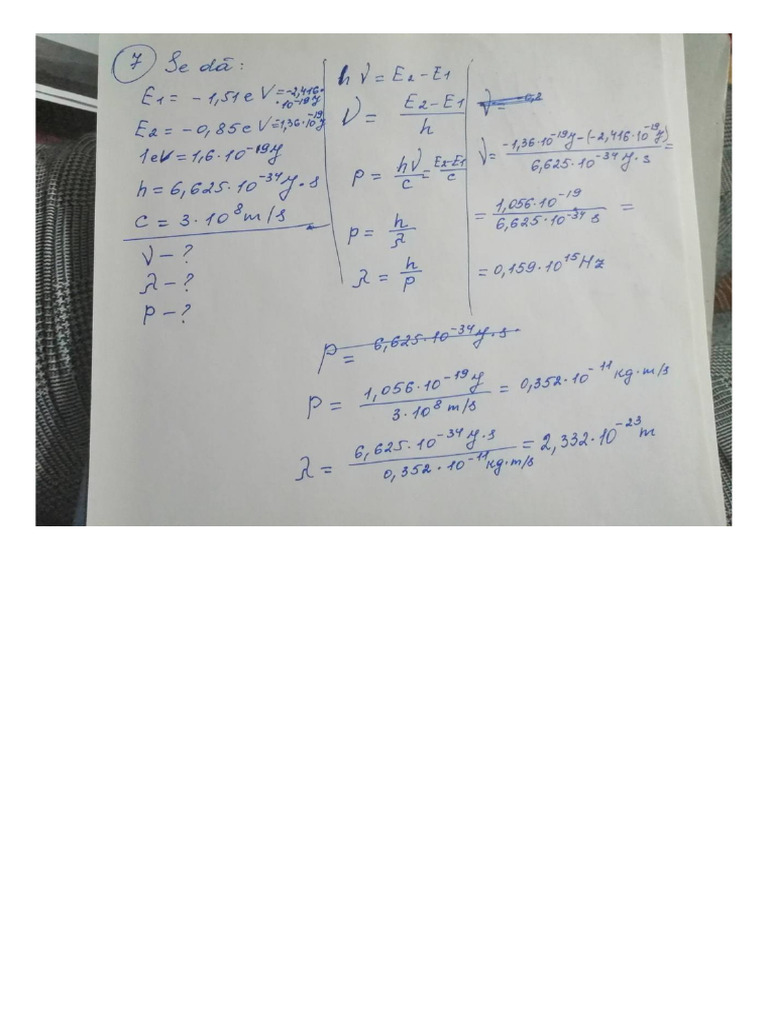 7 Se dă:
E1 = -1,51 eV = -2,416·10^-19 y
E2 = -0,85 eV = -1,36·10^-19 y
1eV = 1,6·10^-19 y
h = 6,625·10^-34 y·s
c = 3·10^8 m/s
ν - ?
λ - ?
P - ?
hν = E2 - E1
ν = (E2 - E1)/h
P = hν/c = (E2-E1)/c
P = h/λ
λ = h/P
ν = (-1,36·10^-19 y - (-2,416·10^-19 y))/(6,625·10^-34 y·s) =
= (1,056·10^-19)/(6,625·10^-34 s) =
= 0,159·10^15 Hz
P = 6,625·10^-34 y·s
P = (1,056·10^-19 y)/(3·10^8 m/s) = 0,352·10^-11 кg·m/s
λ = (6,625·10^-34 y·s)/(0,352·10^-11 кg·m/s) = 2,332·10^-23 m